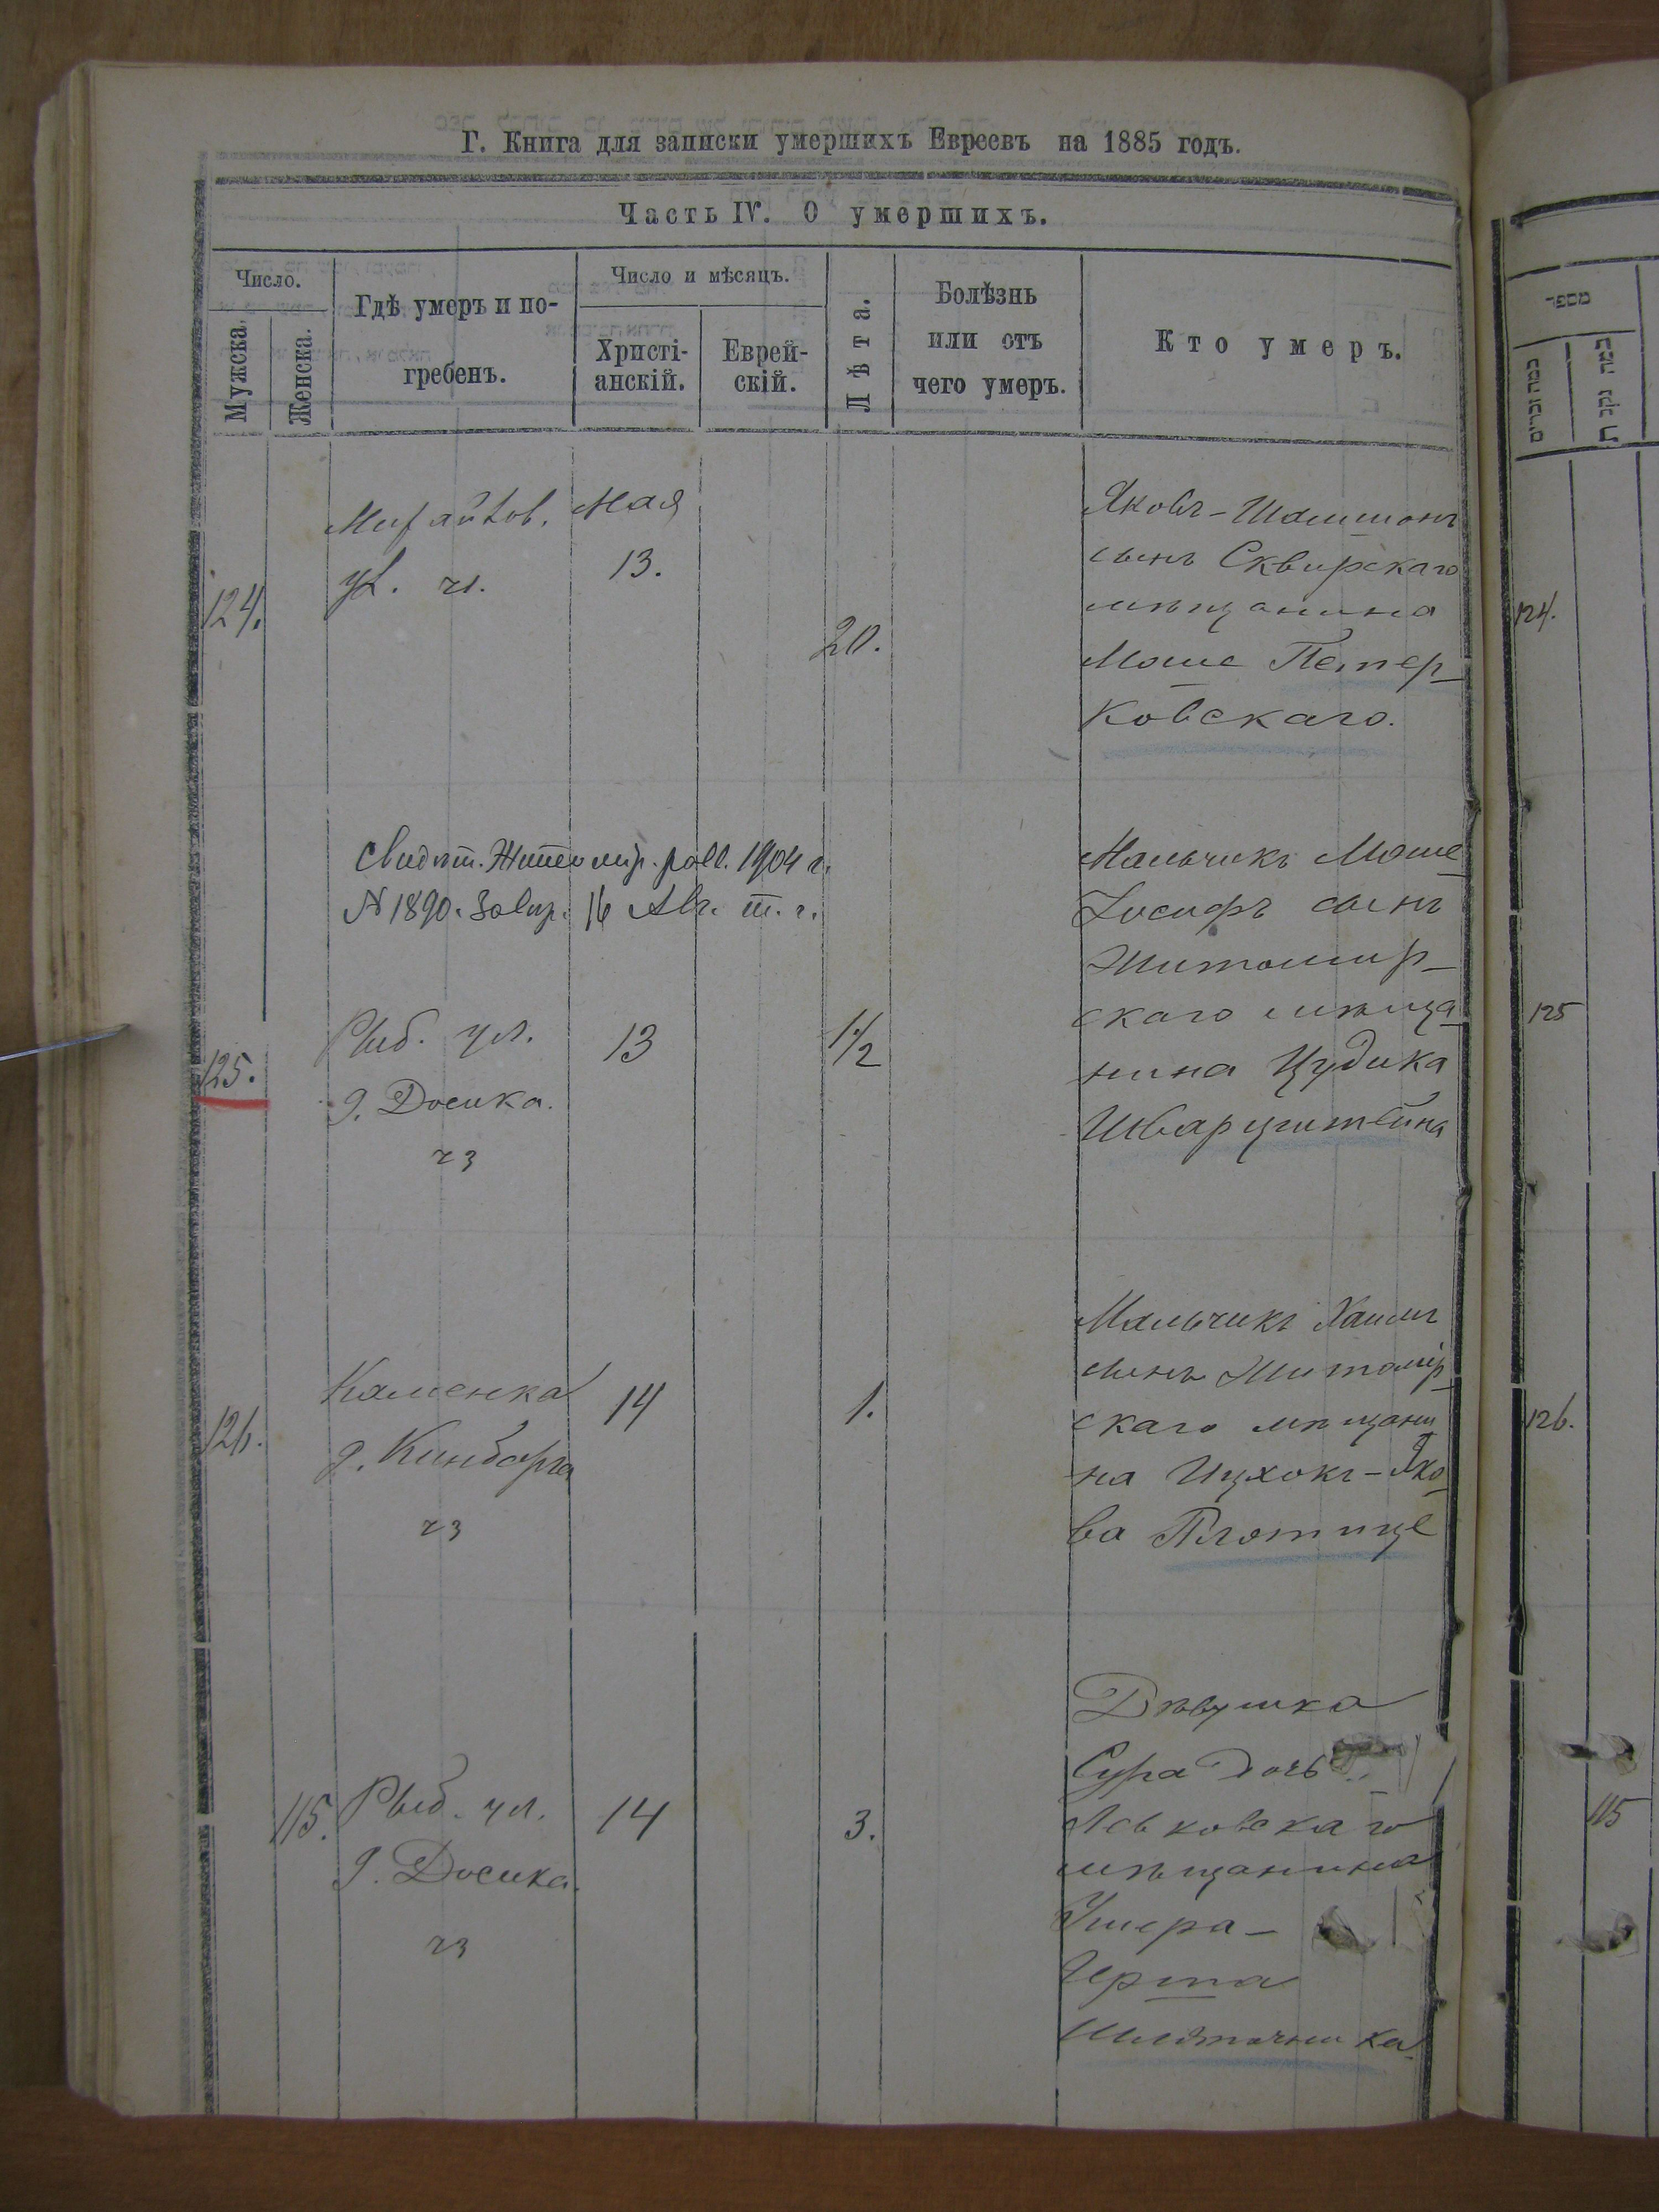 Г. Книга для записки умершихъ Евреевъ на 1885 годъ.
Часть IV. О умершихъ.
Число.
Мужска.
Женска.
Гдѣ умеръ и по-
гребенъ.
Число и мѣсяцъ.
Христі-
анскій.
Еврей-
скій.
Лѣта.
Болѣзнь
или отъ
чего умеръ.
Кто умеръ.
124.
ул. ч.
Мая
13.
20.
Яковъ-Шашпонъ
сынъ Сквирскаго
мѣщанина
Моше Петер-
ковскаго.
124.
Свидѣт. Житомир. 1904 г.
№ 1890. 16 Авг. т. г.
125.
Рыб. ул.
д. Досика.
ч 3
13
1 1/2
Мальчикъ Моше
Іосифъ сынъ
Житомир-
скаго мѣща-
нина Цудика
Шварцштейна
125
126.
Каменка
д. Кинбарга
ч 3
14
1.
Мальчикъ Хаимъ
сынъ Житомір-
скаго мѣщани
на Ицхокъ-Яко-
ва Плотице
126.
115.
Рыб. ул.
д. Досика.
ч 3
14
3.
Дѣвушка
Сура дочь
Левковскаго
мѣщанина
Ушера-
Ирша
115